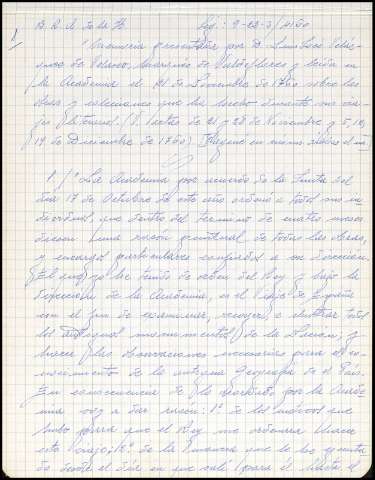 B. R. A. de la H. Leg.: 9-23-3/
1
Memoria presentada por D. Luis José Veláz-
quez de Velasco, Marqués de Valdeflores y leída en
la Academia el 21 de Noviembre de 1750 sobre las
obras y colecciones que ha hecho durante su via-
je literario. (V. Actas de 21 y 28 de Noviembre y 5, 12,
19 de Diciembre de 1750).
1º La Academia por acuerdo de la Junta del
día 17 de Octubre de este año ordenó a todos sus in-
dividuos, que dentro del termino de cuatro meses
diesen una razón puntual de todas las obras,
y encargos particulares confiados a su dirección.
El que yo he tenido de orden del Rey y bajo la
Dirección de la Academia, es el Viaje de España
con el fin de examinar, recoger e ilustrar todos
los antiguos monumentos de la Nación, y
hacer las observaciones necesarias para el co-
nocimiento de la antigua Geografía de el País.
En consecuencia de lo acordado por la Acade-
mia voy a dar razón: 1º de los motivos que
hubo para que el Rey me ordenara hacer
este viaje; 2º de la que se ha
do desde el día en que salí para el hasta el